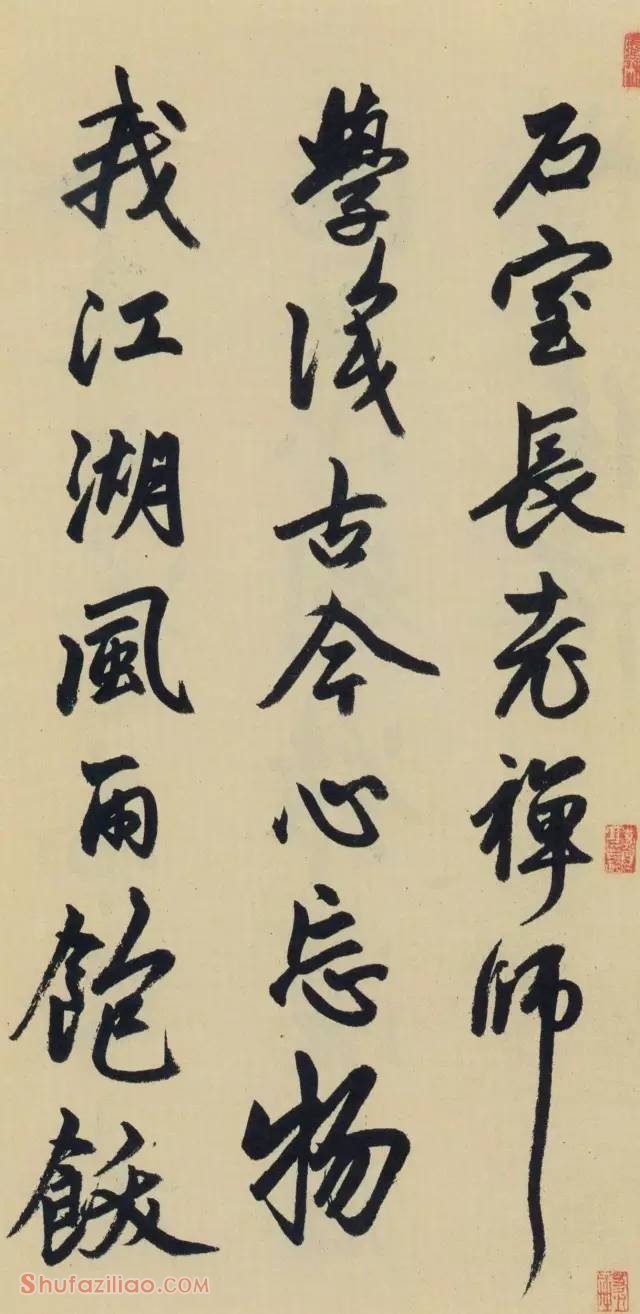 石室長老禪師
學識古今心忘物
我江湖風雨飽飫
Shufaziliao.COM